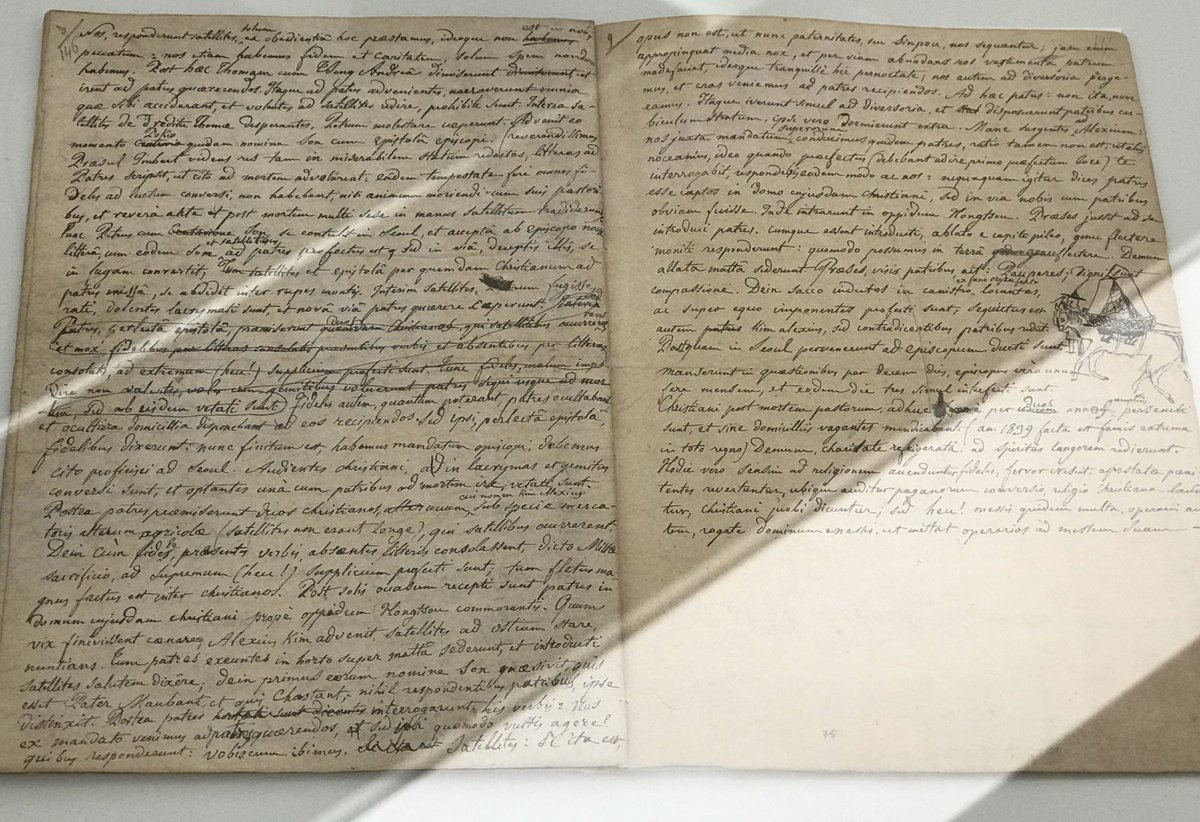 146
solum
est in nobis
Nos, responderunt satellites, ex obedientia hoc præstamus, ideoque non habemus
peccatum: nos etiam habemus fidem et caritatem, solum spem nondum
habemus. Post hæc Thomam cum Andrea dimiserunt ut
irent ad patres quærerendos. Itaque ad patres advenientes, narraverunt omnia
quæ sibi acciderant, et volentes ad satellites redire, prohibiti sunt. Interea sa-
tellites de reditu Thomæ desperantes, Petrum molestare cœperunt. Advenit eo
momento quidam nomine Son cum epistolâ episcopi. reverendissimus
Præsul Imbert videns res tam in miserabilem statum redactas, litteras ad
Patres scripsit, ut cito ad mortem advolarent. Eadem tempestate fere omnes fi-
deles ad luctum conversi, non habebant, nisi animum moriendi cum suis pastori-
bus, et revera ante et post mortem multi sese in manus satellitum tradiderunt
hac Petrus cum Son se contulit in Seoul, et acceptâ ab episcopo
litterâ, cum eodem Son et satellitibus ad patres profectus est sed in viâ, deceptis illis, se
in fugam convertit, et epistolâ per quemdam christianum ad
patres missâ, se abdidit inter rupes montis. Interim satellites, fugisse
rati, dolentes lacrymati sunt, et novâ viâ patres quærere cœperunt.
Patres, perlectâ epistolâ, præmiserunt duos christianos, qui satellitibus occurrerent
et mox, fidelibus præsentibus verbis et absentibus per litteras
consolatis, ad extremum (heu!) supplicium profecti sunt. Tunc fideles,
voluerunt patres sequi usque ad mor
tem, sed ab eisdem vetati sunt. fideles autem, quantum poterant patres occultabant
et occulta domicilia disponebant ad eos recipiendos. Sed ipsi, perlectâ epistolâ
fidelibus dixerunt: nunc finitum est, habemus mandatum episcopi, debemus
cito proficisci ad Seoul. Audientes christiani, in lacrymas et gemitus
conversi sunt, et optantes unà cum patribus ad mortem ire, vetati sunt
cui nomen Kim Alexius
Postea patres præmiserunt duos christianos, alterum sub specie merca-
toris alterum agricolæ (satellites non erant longe), qui satellitibus occurrerent.
Dein cum fideles, præsentes verbis, absentes litteris consolassent, dicto Missæ
sacrificio, ad supremum (heu!) supplicium profecti sunt; tum fletus ma-
gnus factus est inter christianos. Post solis occasum recepti sunt patres in
domum cujusdam christiani propè oppidum Hongtsou commorantis. Quum
vix finivissent cœnare, Alexius Kim advenit, satellites ad ostium stare,
nuntians. Tum patres exeuntes in horto super mattâ sederunt, et introducti
satellites salutem dixêre; dein primus eorum nomine Son quæsivit, quis
esset Pater Maubant, et quis Chastant; nihil respondentibus patribus, ipse
distinxit. Postea patres interrogarunt his verbis: Nos
ex mandato venimus ad patres quærendos, sed ipsi quomodo vultis agere?
quibus responderunt: vobiscum ibimus. et satellites: Si ita est,
opus non est, ut nunc paternitates, seu Sinpou, nos sequantur; jam enim
appropinquat media nox, et per viam abundans ros vestimenta patrum
madefaciet, ideoque tranquillè hic pernoctate; nos autem ad diversoria perge-
mus, et cras veniemus ad patres recipiendos. Ad hæc patres: non ita, non
eamus. Itaque iverunt simul ad diversoria, et disposuerunt patribus cu-
biculum stratum, ipsi vero dormierunt extra. Mane surgentes ad Alexium:
superiorum
nos juxta mandatum conduximus quidem patres, ratio tamen non est, ut aliis
noceamus, ideo quando præfectus (debebant adire primo præfectum loci) te
interrogabit, responde eodem modo ac nos: nequaquam igitur dices patres
esse captos in domo cujusdam christiani, sed in via nobis cum patribus
obviam fuisse. Inde intrarunt in oppidum Hongtsou. Præses jussit ad se
introduci patres. cumque essent introducti, ablato e capite pileo, genu flectere
moniti responderunt: quomodo possumus in terrâ flectere. Demum
allata mattâ sederunt. Præses, visis patribus ait: Pauperes; digni sunt
compassione. Dein sacco indutos in canistro, locantes,
ac super equo imponentes profecti sunt; sequutus est
autem patres Kim alexius, sed contradicentibus patribus rediit.
Postquam in Seoul pervenerunt ad episcopum ducti sunt
manserunt in quæstionibus per decem dies, episcopus vero unum
fere mensem, et eodem die tres simul interfecti sunt.
Christiani post mortem pastorum, adhuc per duos annos persecuti
sunt, et sine domiciliis vagantes mendicabant (an. 1839 facta et famis extrema
in toto regno) Demum, charitate refrigerata, ad spiritus langorem redierunt.
Hodie vero sensim ad religionem accenduntur fideles, fervor crescit, apostatæ pæni
tentes revertuntur, ubique auditur paganorum conversio, religio christiana lauda
tur, christiani probi dicuntur; sed heu! messis quidem multa, operarii au
tem, rogate dominum messis, ut mittat operarios ad messem suam
75